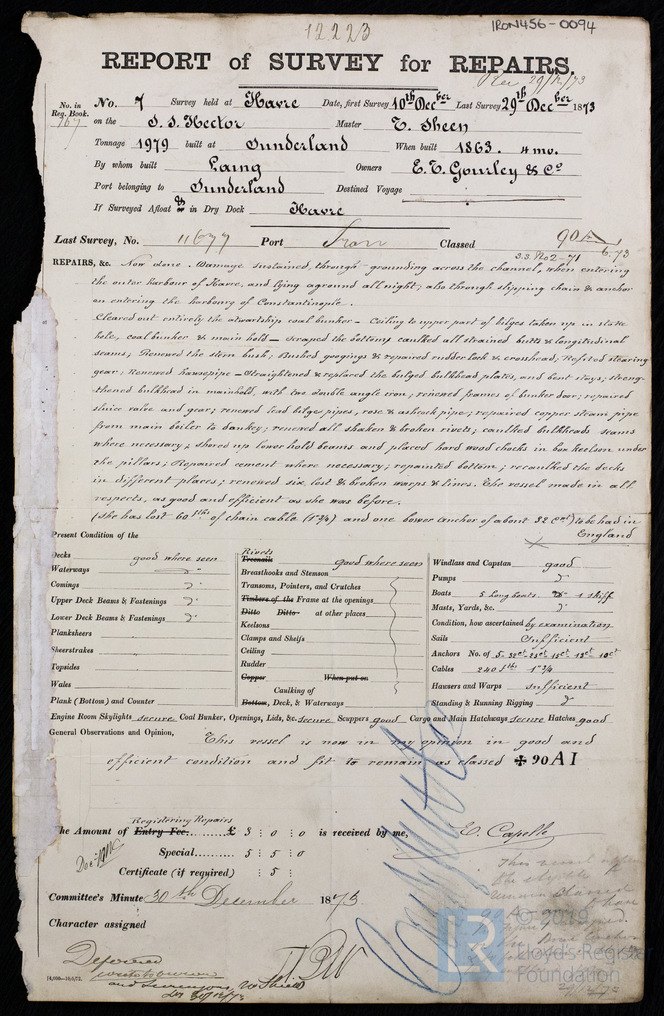 12223
IRON456-0094
REPORT of SURVEY for REPAIRS.
Rec 29/12/73
No. in Reg. Book.
767
No. 7 Survey held at Havre Date, first Survey 10th Decber Last Survey 29th Decber 1873
on the S.S. Hector Master T. Sheen
Tonnage 1979 built at Sunderland When built 1863. 4 mo.
By whom built Laing Owners E. T. Gourley & Co
Port belonging to Sunderland Destined Voyage
If Surveyed Afloat & or in Dry Dock Havre
Last Survey, No. 11677 Port Classed 90A 6.73
S.S. No 2-71
REPAIRS, &c. Now done. Damage sustained, through grounding across the channel, when entering
the outer harbour of Havre, and lying aground all night; also through slipping chain & anchor
on entering the harbour of Constantinople.
Cleared out entirely the atwartship coal bunker - Ceiling to upper part of bilges taken up in stoke
hole, coal bunker & main hold - scraped the bottom, caulked all strained butts & longitudinal
seams; Renewed the stern bush; Bushed googings & repaired rudder lock & crosshead; Refited stearing
gear; Renewed hawsepipe - Straightened & replaced the bulged bulkhead plates, and bent stays, streng-
thened bulkhead in mainhold, with two double angle iron; renewed frames of bunker door; repaired
sluice valve and gear; renewed lead bilge pipes, rose & ashcock pipe; repaired copper steam pipe
from main boiler to dankey; renewed all shaken & broken rivets; caulked bulkheads seams
where necessary; shored up lower hold beams and placed hard wood chocks in box keelson under
the pillars; Repaired cement where necessary; repainted bottom; recaulked the decks
in different places; renewed six lost & broken warps & lines. The vessel made in all
respects, as good and efficient as she was before.
(She has lost 60 fths of chain cable (1 3/4) and one bower anchor of about 32 Cwt) to be had in
England
Present Condition of the
Decks good where seen
Waterways "
Comings do
Upper Deck Beams & Fastenings do
Lower Deck Beams & Fastenings do
Planksheers
Sheerstrakes
Topsides
Wales
Plank (Bottom) and Counter
Rivets
Treenails good where seen
Breasthooks and Stemson
Transoms, Pointers, and Crutches
Timbers of the Frame at the openings
Ditto Ditto at other places
Keelsons
Clamps and Shelfs
Ceiling
Rudder
Copper When put on
Caulking of
Bottom, Deck, & Waterways
Windlass and Capstan good
Pumps do
Boats 5 long boats & 1 skiff
Masts, Yards, &c. do
Condition, how ascertained by examination
Sails Sufficient
Anchors No. of 5
Cables 240 fths 1 3/4
Hawsers and Warps sufficient
Standing & Running Rigging do
Engine Room Skylights secure Coal Bunker, Openings, Lids, &c. secure Scuppers good Cargo and Main Hatchways secure Hatches good
General Observations and Opinion, This vessel is now in my opinion in good and
efficient condition and fit to remain as classed ✠ 90 A1
Registering Repairs
The Amount of Entry Fee £ 3 : 0 : 0 is received by me, E. Capelle
Special 5 : 5 : 0
Certificate (if required) : 5 :
Committee's Minute 30th December 1873
Character assigned
Deferred
and Surveyors
30/12/73
This vessel
© 2019
Lloyd's Register
Foundation
LR